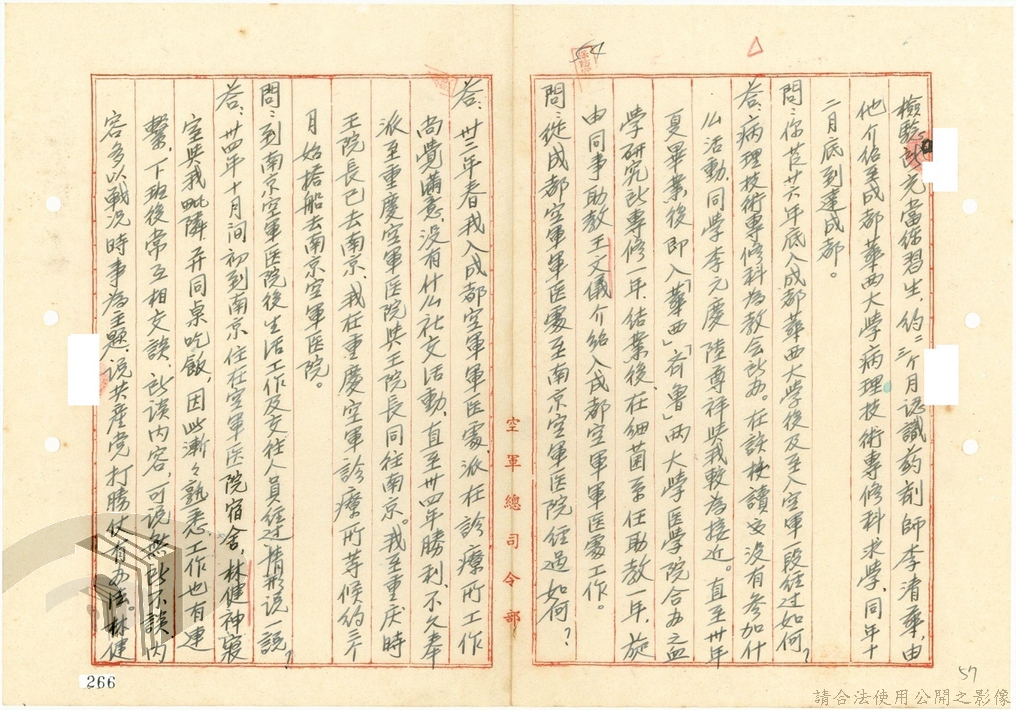 檢驗所充當練習生，約二三个月認識葯剂師李濬華，由
他介紹至成都華西大學病理技術專修科求學，同年十
二月底到達成都。
問：你茬廿六年底入成都華西大學後及至入空軍一段經过如何？
答：病理技術專修科為教会所办。在該校讀書没有參加什
么活動，同學李元慶陸專祥與我較為接近。直至卅年
夏畢業，後即入「華西」「齐魯」兩大學医學院合办之血
學研究所專修一年，結業後，在細菌系任助教一年，旋
由同事助教王文儀介紹入成都空軍軍医處工作。
問：從成都空軍軍医處至南京空軍医院經過如何？
空軍總司令部
答：卅三年春我入成都空軍軍医處，派在診療所工作
尚覺滿意，没有什么社交活動，直至卅四年勝利，不久奉
派至重慶空軍医院與王院長同往南京。我至重庆時
王院長已去南京，我在重慶空軍診療所等候約三个
月始搭船去南京空軍医院。
問：到南京空軍医院後生活工作及交往人員經过情形说一説？
答：卅四年十月間初到南京住在空軍医院宿舍，林健神寢
室與我毗隣，并同桌吃飯，因此漸々熟悉，工作也有連
繫，下班後常互相交談，所談内容，可说無所不談，内
容多以戰況時事為主題，说共產党打勝仗有办法。林健
54
57
266
請合法使用公開之影像